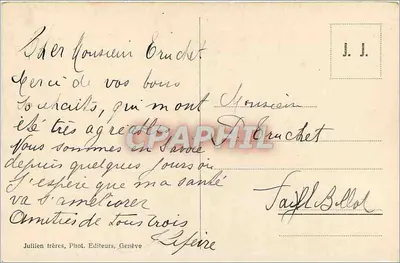 Cher Monsieur Truchet
Merci de vos bons
souhaits, qui m'ont
été très agréables
Nous sommes en Savoie
depuis quelques jours où
J'espère que ma santé
va s'améliorer
Amitiés de tous trois
Lefèvre
Jullien frères, Phot. Editeurs, Genève
J. J.
Monsieur
Truchet
Fayl Billot
CPARPHIL